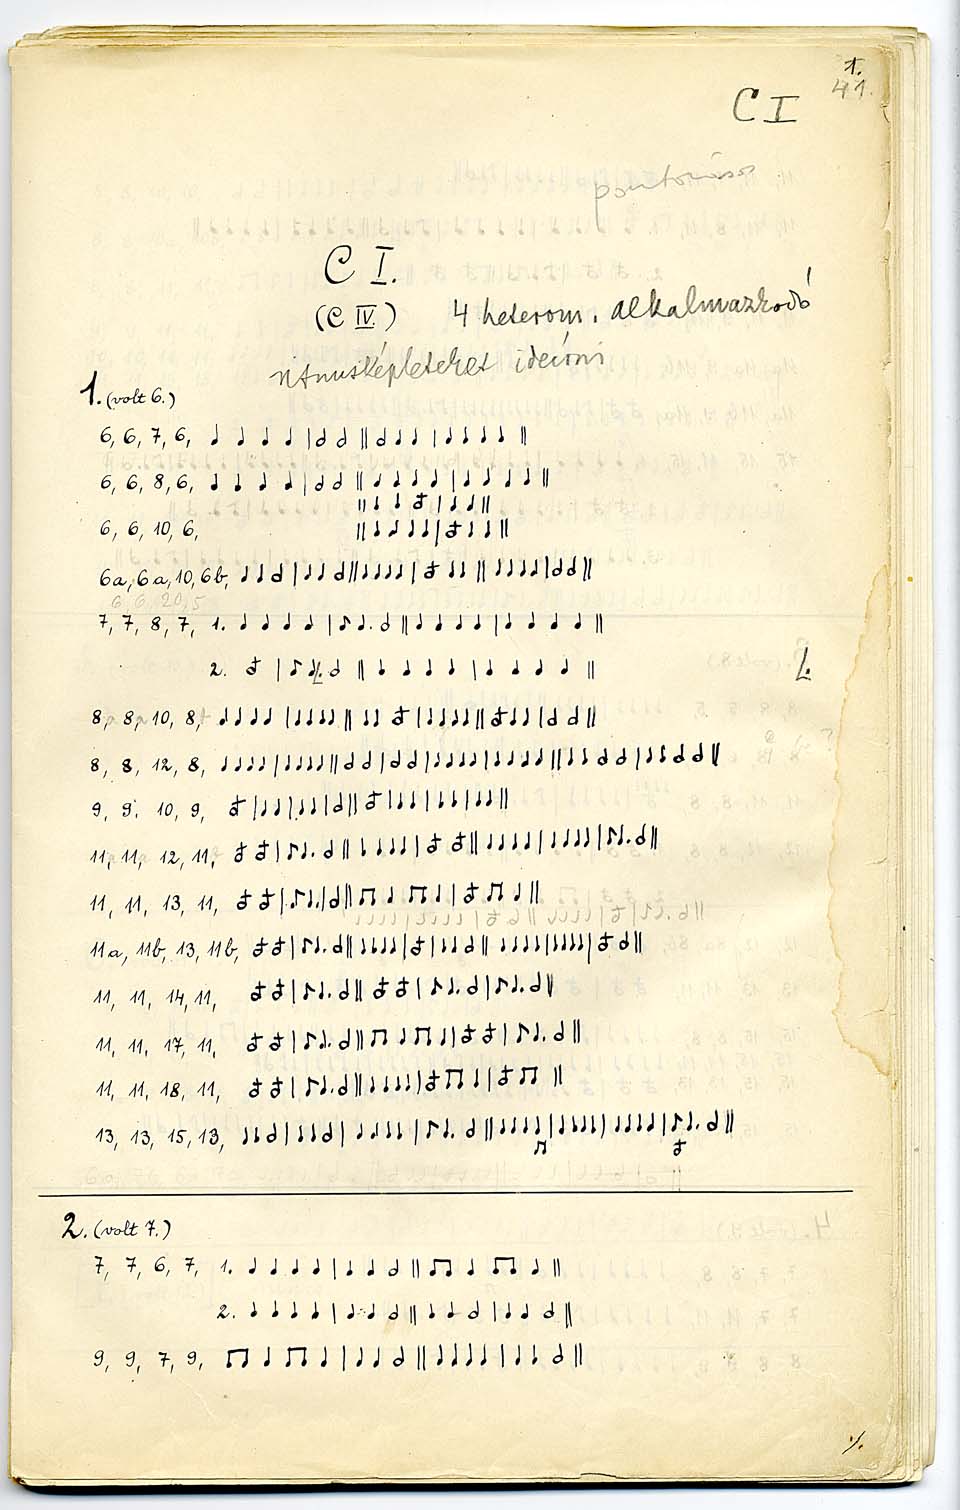 1.
41.
C I
pontozásos
C I.
(C IV.) 4 heterom. alkalmazkodó
ritmusképleteket ideírni
1. (volt 6.)
6, 6, 7, 6,
6, 6, 8, 6,
6, 6, 10, 6,
6a, 6a, 10, 6b,
6, 6, 20, 5
7, 7, 8, 7, 1.
2.
8, 8, 10, 8,
8, 8, 12, 8,
9, 9, 10, 9,
11, 11, 12, 11,
11, 11, 13, 11,
11a, 11b, 13, 11b,
11, 11, 14, 11,
11, 11, 17, 11,
11, 11, 18, 11,
13, 13, 15, 13,
2. (volt 7.)
7, 7, 6, 7, 1.
2.
9, 9, 7, 9,
./.